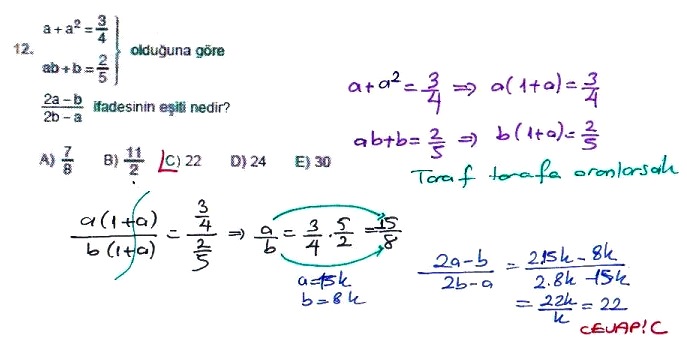 12. a + a² = 3/4
ab + b = 2/5 } olduğuna göre
2a – b / 2b – a ifadesinin eşiti nedir?
A) 7/8 B) 11/2 C) 22 D) 24 E) 30
a + a² = 3/4 ⇒ a(1+a) = 3/4
ab + b = 2/5 ⇒ b(1+a) = 2/5
Taraf tarafa oranlarsak
a(1+a) / b(1+a) = 3/4 / 2/5 ⇒ a/b = 3/4 · 5/2 = 15/8
a = 15k
b = 8k
2a – b / 2b – a = 2.15k – 8k / 2.8k – 15k
= 22k / k = 22
CEVAP: C